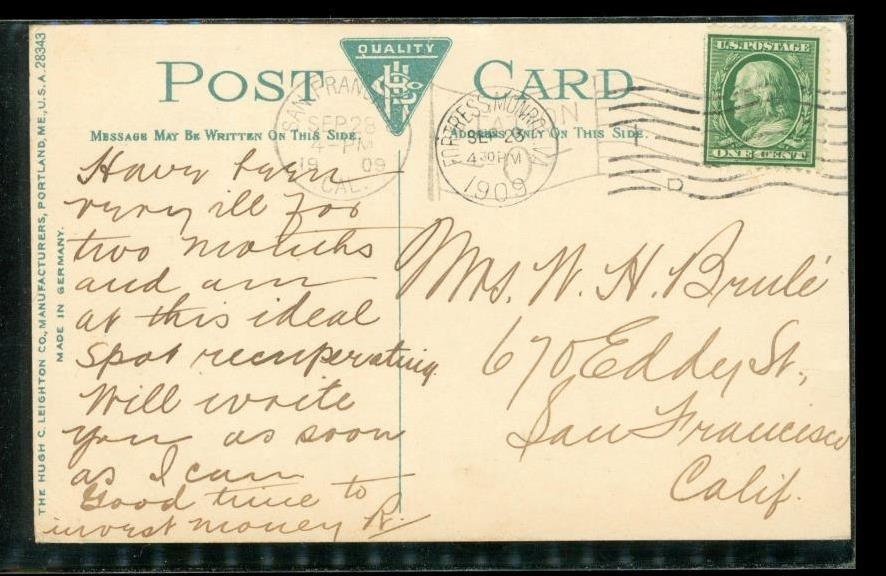 THE HUGH C. LEIGHTON CO., MANUFACTURERS, PORTLAND, ME., U.S.A. 28343
MADE IN GERMANY.
POST CARD
QUALITY
MESSAGE MAY BE WRITTEN ON THIS SIDE.
ADDRESS ONLY ON THIS SIDE.
U.S. POSTAGE
ONE CENT
SAN FRANC
SEP 28
4-PM
19 09
CAL.
FORTRESS MONROE, VA.
SEP 23
4 30 PM
1909
Have been
very ill for
two months
and am
at this ideal
spot recuperating
Will write
you as soon
as I can
Good time to
invest money R.
Mrs. W. H. Brulé
670 Eddy St.,
San Francisco
Calif.